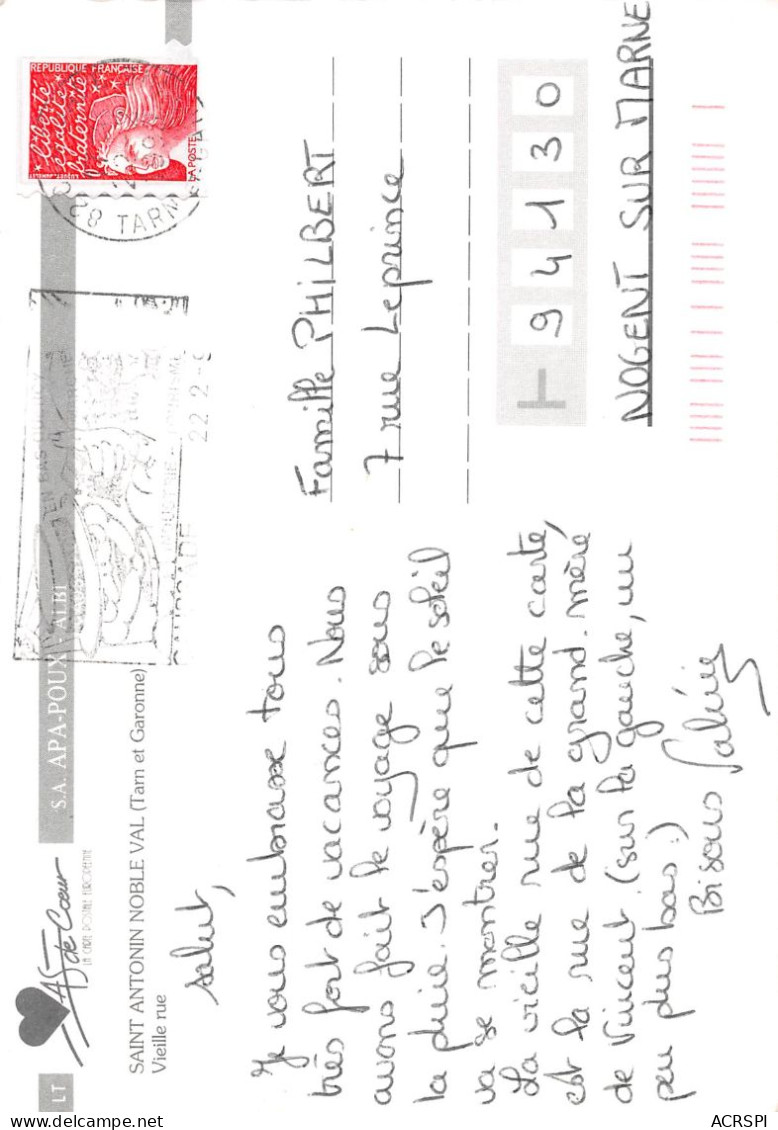 LT
AS de Coeur
LA CARTE POSTALE EUROPEENNE
S.A. APA-POUX - ALBI
SAINT ANTONIN NOBLE VAL (Tarn et Garonne)
Vieille rue
Salut,
Je vous embrasse tous
très fort de vacances. Nous
avons fait le voyage sous
la pluie. J'espère que le soleil
va se montrer.
La vieille rue de cette carte,
est la rue de la grand-mère
de Vincent. (sur la gauche, un
peu plus bas.)
Bisous
RÉPUBLIQUE FRANÇAISE
liberté
égalité
fraternité
LA POSTE
82 TARN
22 2
Famille PHILBERT
7 rue Leprince
94130
NOGENT SUR MARNE
ACRSPI